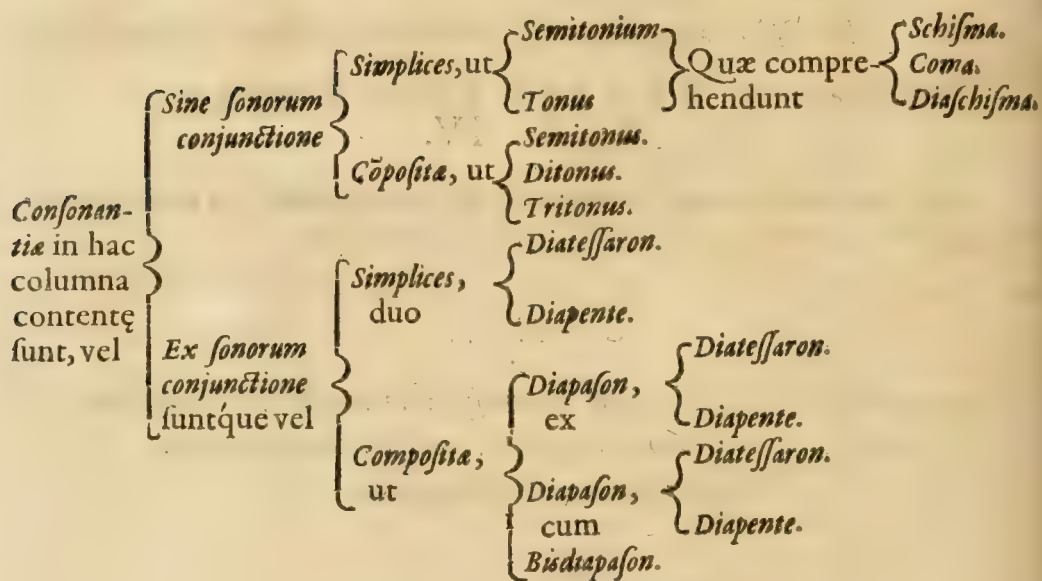 Conſonan-
tiæ in hac
columna
contentę
ſunt, vel
Sine ſonorum
conjunctione
Simplices, ut
Semitonium
Tonus
Quæ compre-
hendunt
Schiſma.
Coma.
Diaſchiſma.
Cōpoſitæ, ut
Semitonus.
Ditonus.
Tritonus.
Ex ſonorum
conjunctione
ſuntq́ue vel
Simplices,
duo
Diateſſaron.
Diapente.
Compoſitæ,
ut
Diapaſon,
ex
Diateſſaron.
Diapente.
Diapaſon,
cum
Diateſſaron.
Diapente.
Bisdiapaſon.